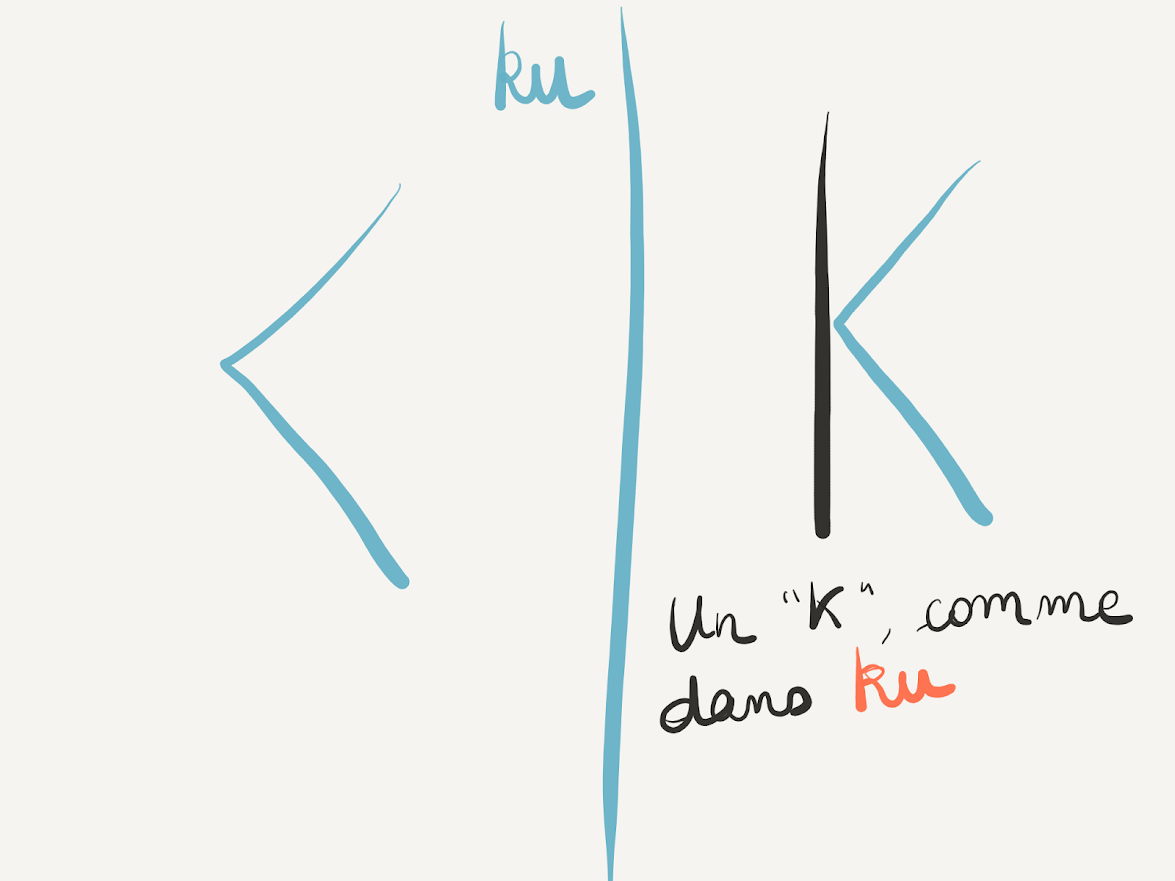 ku
く
K
Un "K", comme
dans ku